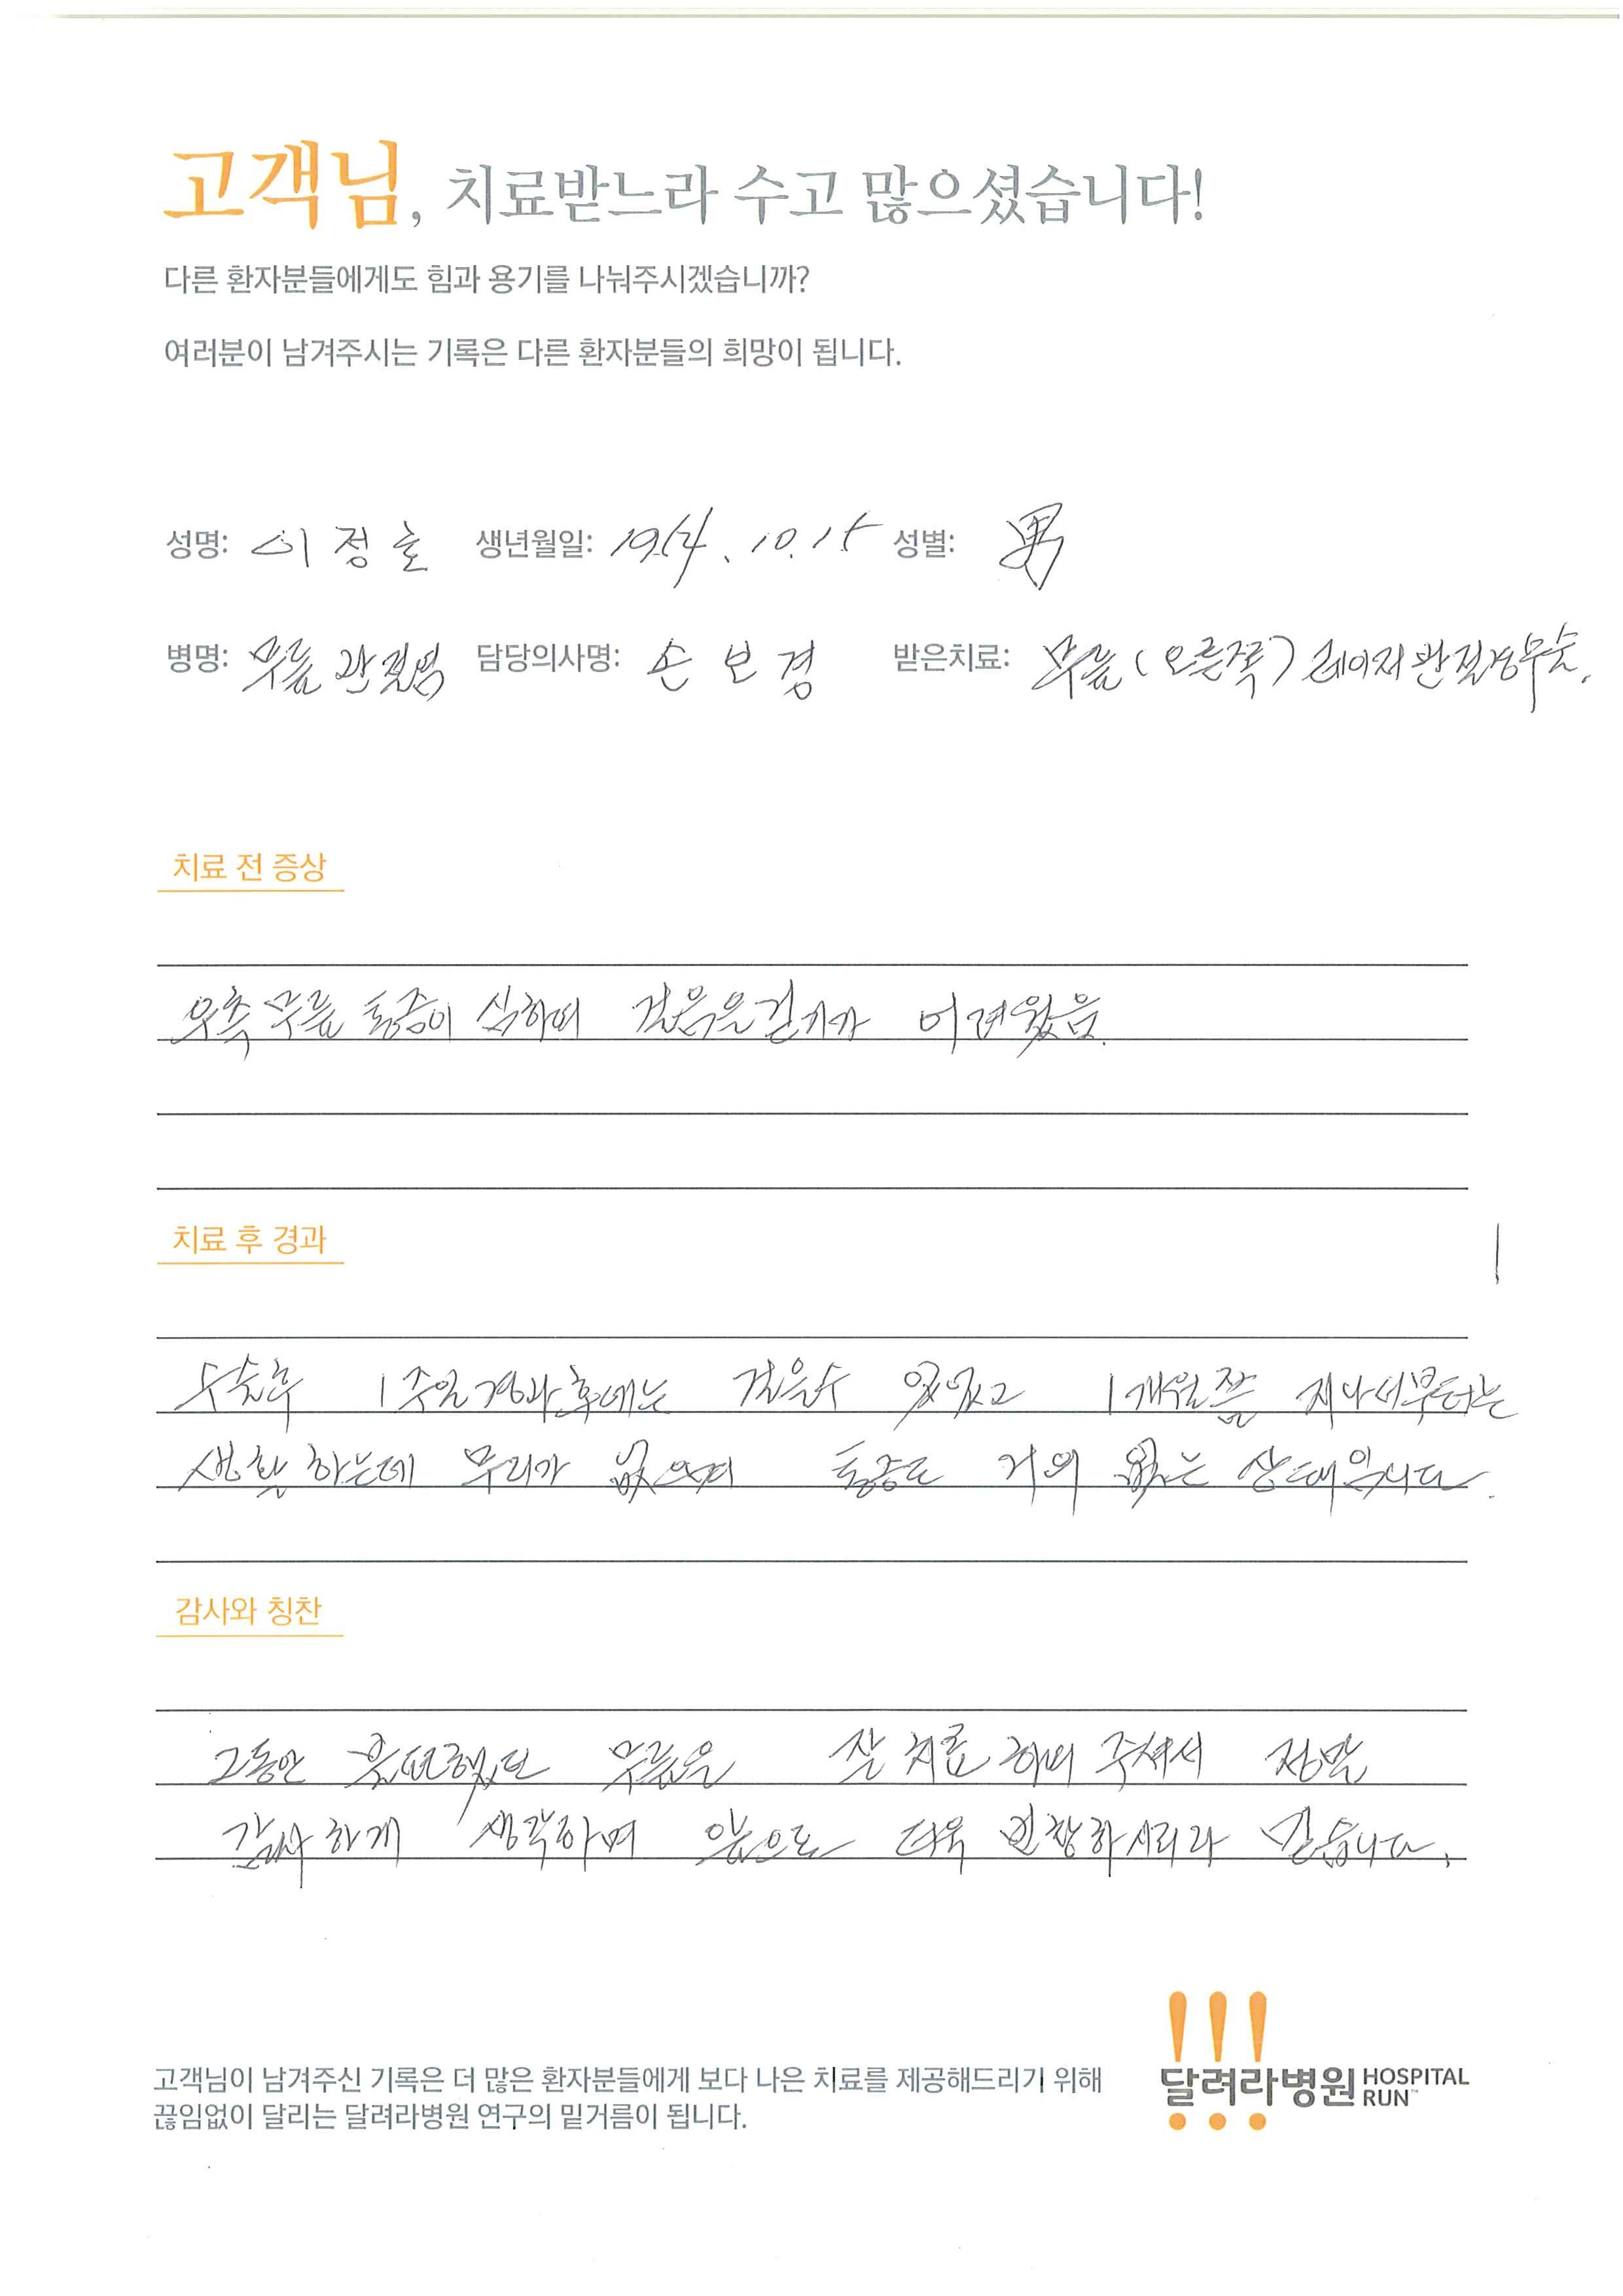 고객님, 치료받느라 수고 많으셨습니다!
다른 환자분들에게도 힘과 용기를 나눠주시겠습니까?
여러분이 남겨주시는 기록은 다른 환자분들의 희망이 됩니다.
성명: 이정호 생년월일: 19 4. 10. 15 성별: 男
병명: 무릎관절염 담당의사명: 손보경 받은치료: 무릎(오른쪽) 레이저
치료 전 증상
우측 무릎 통증이 심하여 걸음은 걷기가 어려웠음.
치료 후 경과
수술후 1주일 경과 후에는 걸을수 있었고 1개월쯤 지나서부터는
생활하는데 무리가 없으며 통증도 거의 없는 상태입니다.
감사와 칭찬
그동안 불편했던 무릎을 잘 치료하여 주셔서 정말
감사하게 생각하며 앞으로 더욱 번창하시리라 믿습니다.
고객님이 남겨주신 기록은 더 많은 환자분들에게 보다 나은 치료를 제공해드리기 위해
끊임없이 달리는 달려라병원 연구의 밑거름이 됩니다.
달려라병원 HOSPITAL RUN™